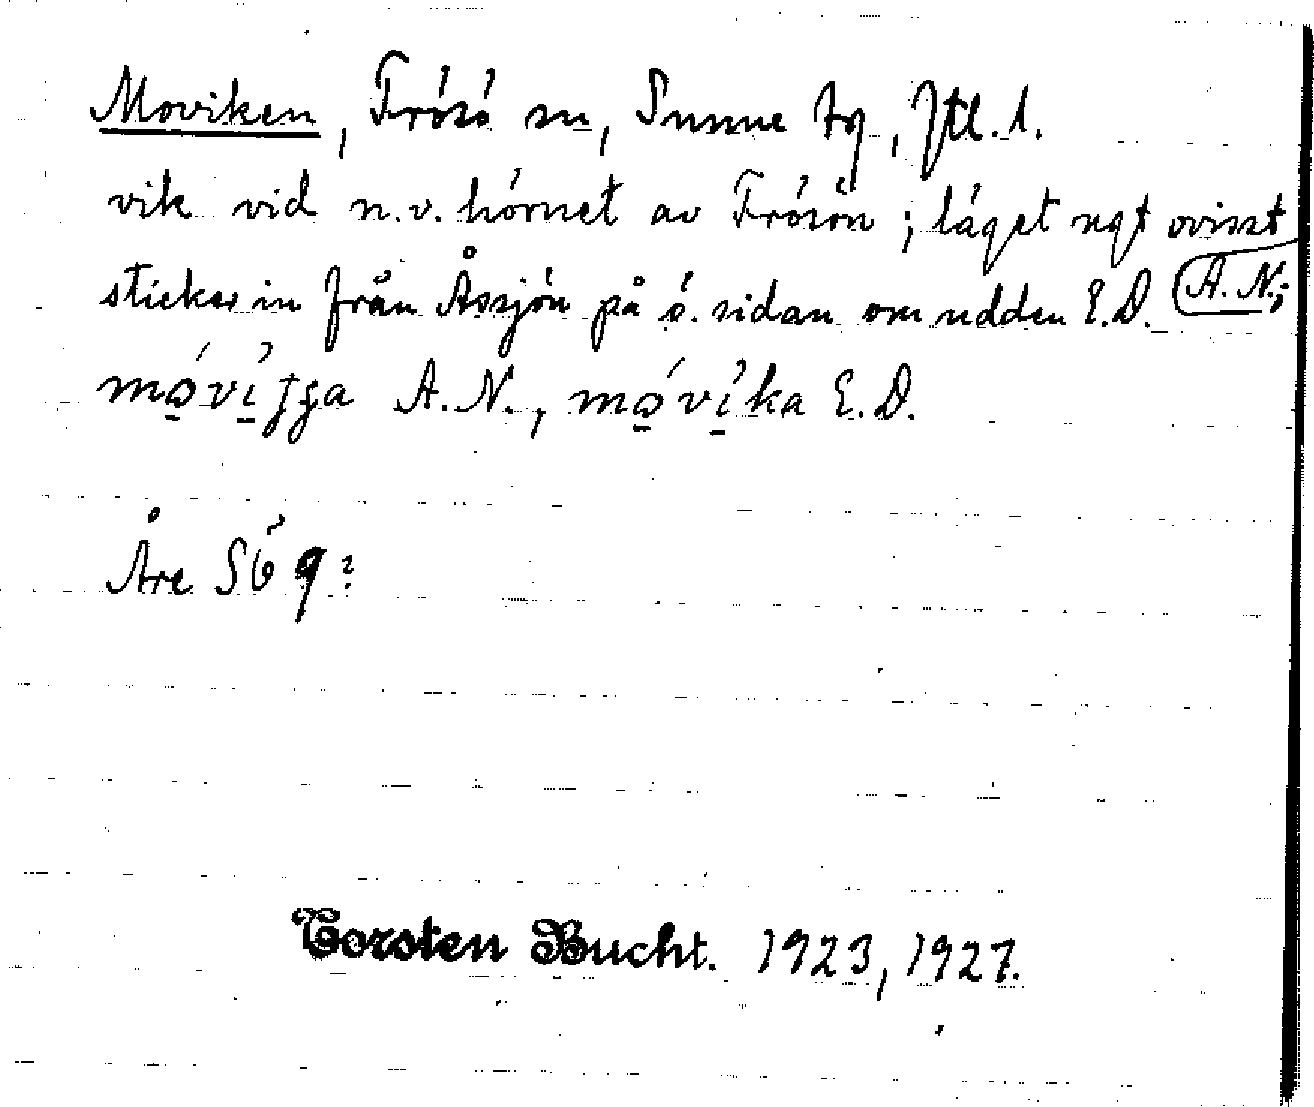 Moviken, Frösö sn, Sunne tg, Jtl. l.
vik vid n.v. hörnet av Frösön; läget ngt ovisst
sticker in från Åssjön på ö. sidan om udden E.D. A.N.;
A.N., móvíka E.D.
Åre SÖ q:
Torsten Bucht. 1923, 1927.